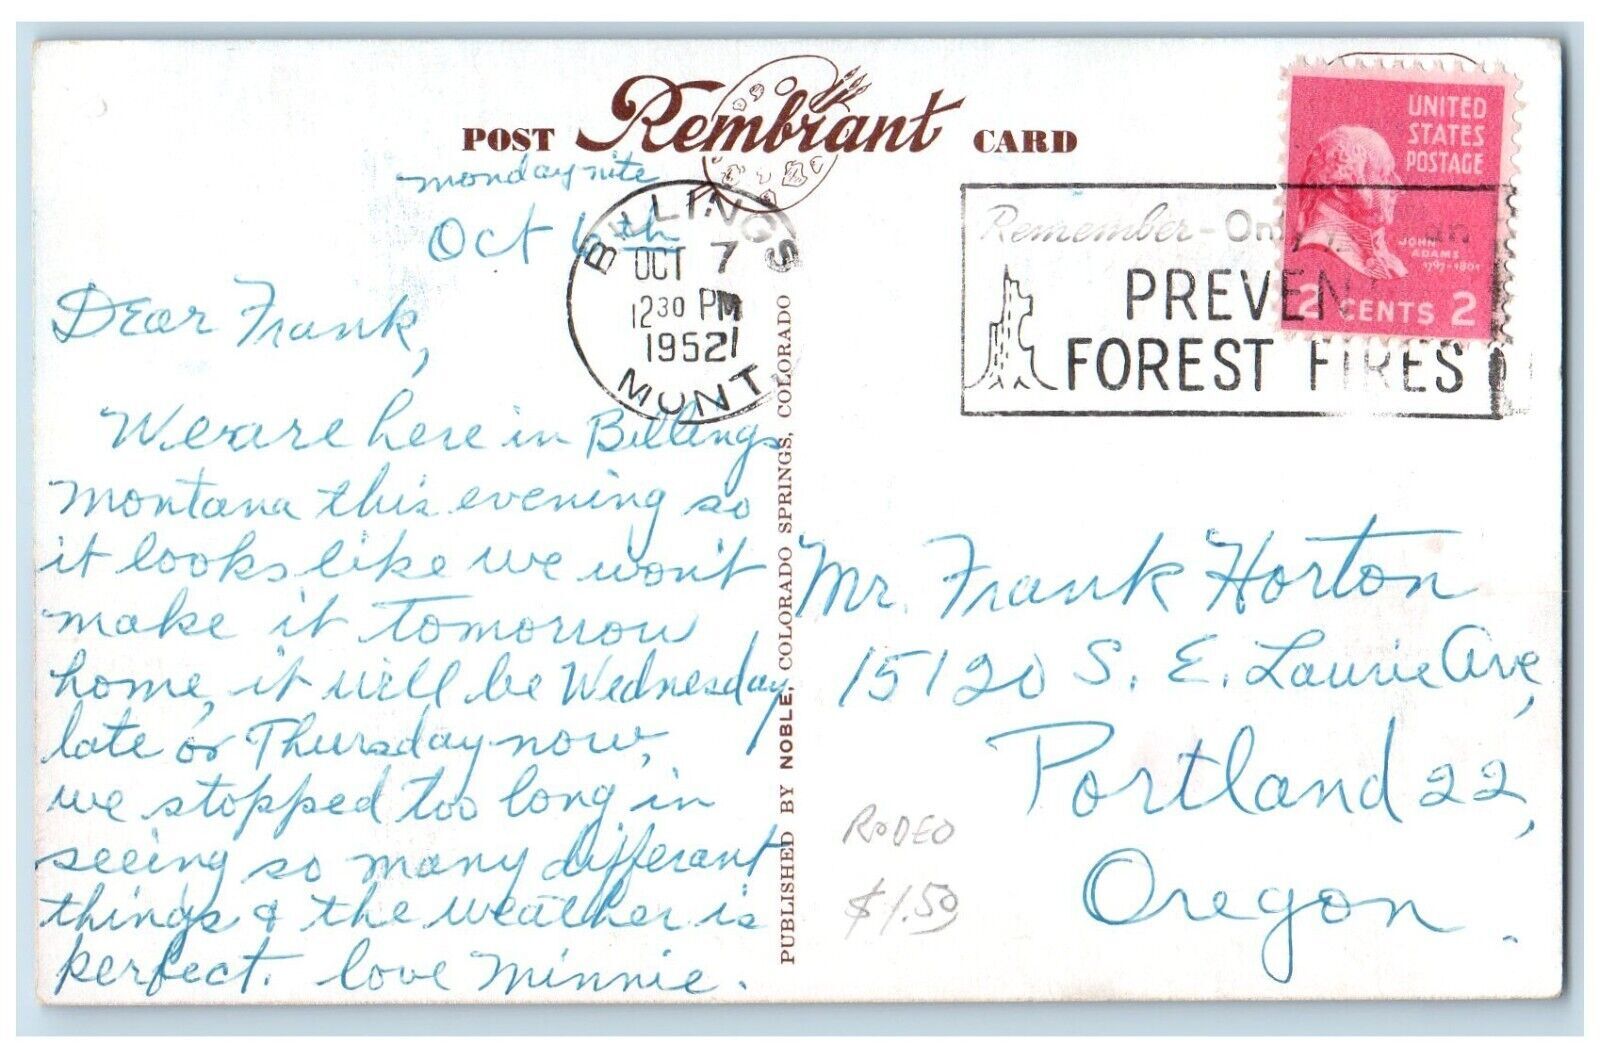 POST Rembrant CARD
UNITED
STATES
POSTAGE
JOHN
ADAMS
1797-1801
2 CENTS 2
BILLINGS
OCT 7
12 30 PM
1952
MONT.
Remember - Only
PREVENT
FOREST FIRES
monday nite
Oct 6th
Dear Frank,
We are here in Billings
Montana this evening so
it looks like we won't
make it tomorrow
home, it will be Wednesday
late or Thursday now,
we stopped too long in
seeing so many differant
things & the weather is
perfect. love Minnie.
PUBLISHED BY NOBLE, COLORADO SPRINGS, COLORADO
Mr. Frank Horton
15120 S. E. Laurie Ave,
Portland 22,
Oregon.
RODEO
$1.50